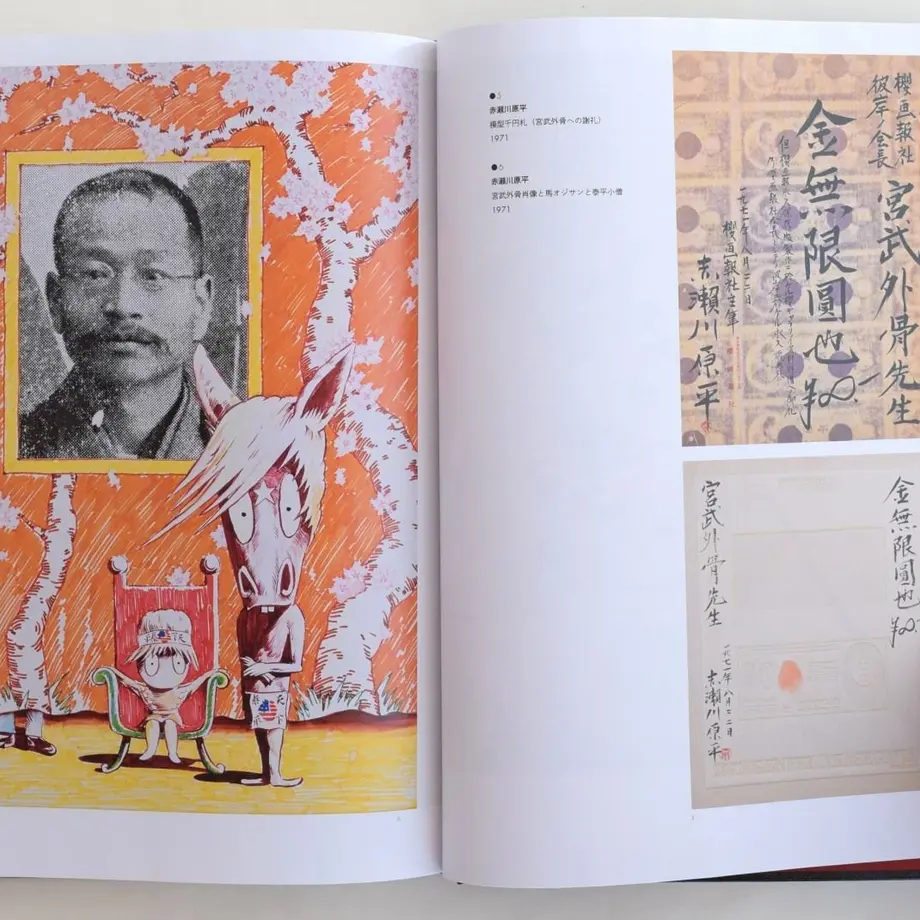 ●5
赤瀬川原平
模型千円札（宮武外骨への謝礼）
1971
●6
赤瀬川原平
宮武外骨肖像と馬オジサンと泰平小僧
1971
櫻画報社
彼岸会長
宮武外骨先生
金無限圓也
一九七一年八月二二日
櫻画報社主筆
赤瀬川原平
金無限圓也
宮武外骨先生
一九七一年八月二二日
赤瀬川原平